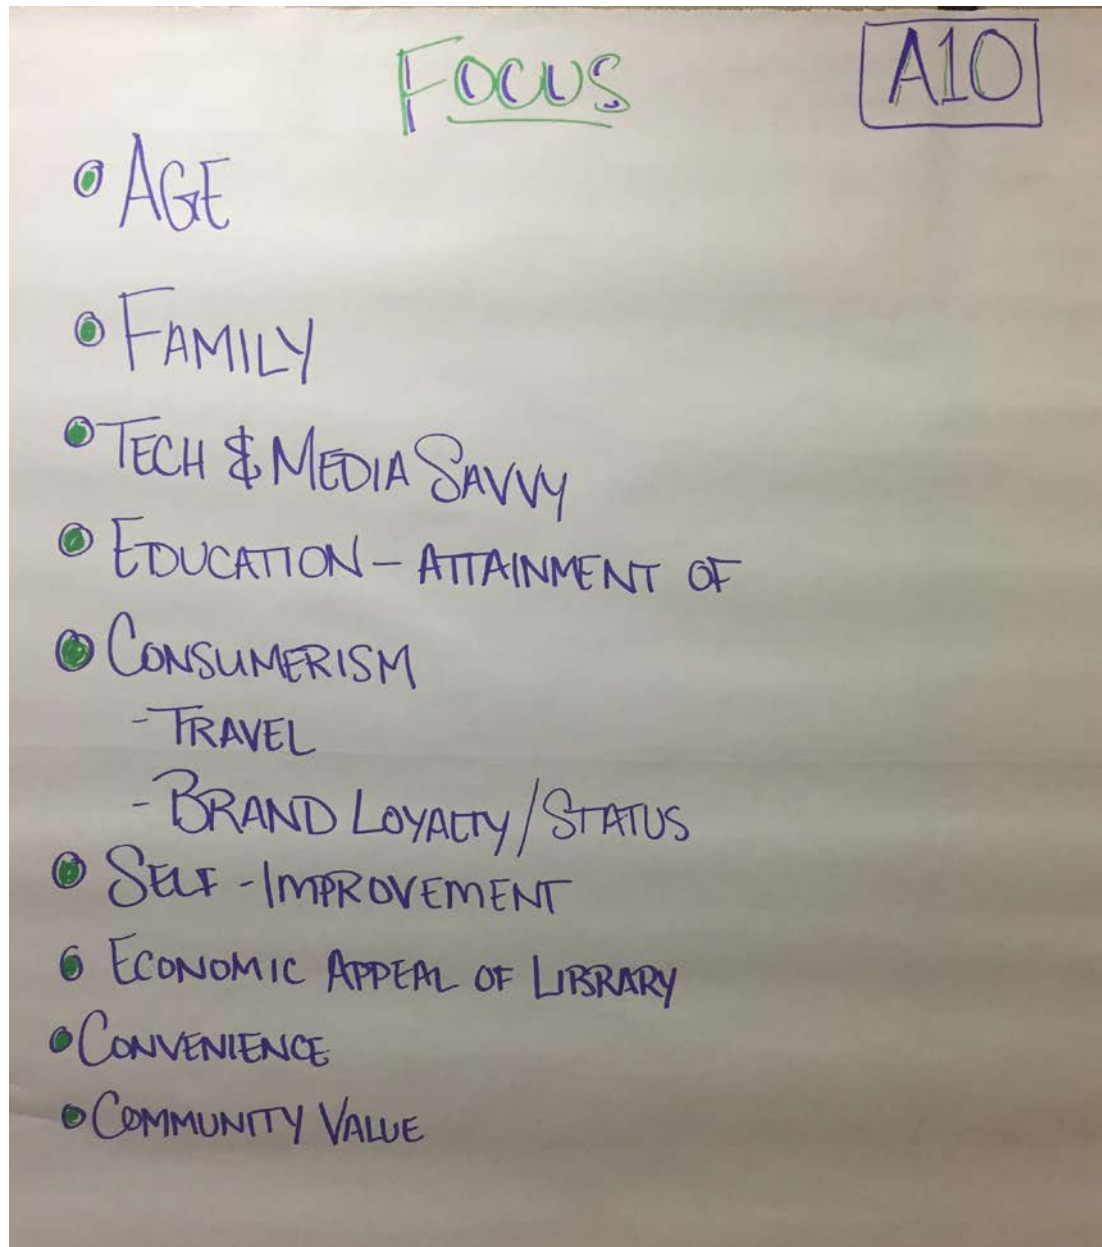 FOCUS
A10
• AGE
• FAMILY
• TECH & MEDIA SAVVY
• EDUCATION - ATTAINMENT OF
• CONSUMERISM
- TRAVEL
- BRAND LOYALTY/STATUS
• SELF-IMPROVEMENT
• ECONOMIC APPEAL OF LIBRARY
• CONVENIENCE
• COMMUNITY VALUE